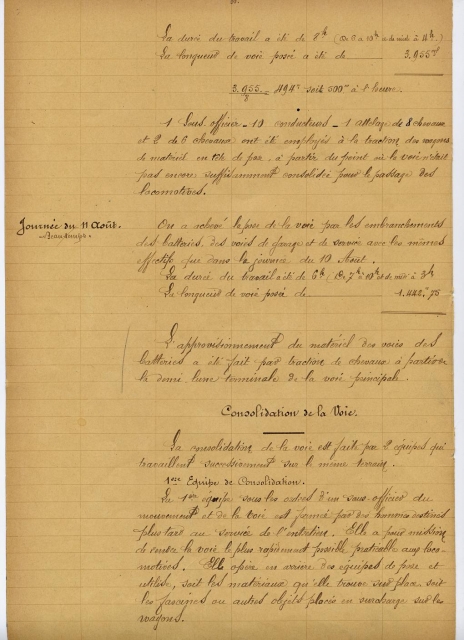 La durée du travail a été de 8h (De 6 à 10h et de midi à 4h.)
La longueur de voie posée a été de 3.955m
3.955 / 8 494m soit 500m à l'heure.
1 Sous-officier - 10 conducteurs - 1 attelage de 8 chevaux
et 2 de 6 chevaux ont été employés à la traction des wagons
de matériel en tête de pose, à partir du point où la voie n'était
pas encore suffisamment consolidée pour le passage des
locomotives.
Journée du 11 Août.
Beau temps.
On a achevé la pose de la voie par les embranchements
des batteries, des voies de garage et de service avec les mêmes
effectifs que dans la journée du 10 Août.
La durée du travail a été de 6h (De 7h à 10h et de midi à 3h
La longueur de voie posée de 1.442m 75
L'approvisionnement du matériel des voies des
batteries a été fait par traction de chevaux à partir de
la demi lune terminale de la voie principale.
Consolidation de la Voie.
La consolidation de la voie est faite par 2 équipes qui
travaillent successivement sur le même terrain.
1ère Equipe de Consolidation.
La 1ère équipe sous les ordres d'un sous-officier du
mouvement et de la voie est formée par des hommes destinés
plus tard au service de l'entretien. Elle a pour mission
de rendre la voie le plus rapidement possible praticable aux loco-
motives. Elle opère en arrière des équipes de pose et
utilise, soit les matériaux qu'elle trouve sur place, soit
les fascines ou autres objets placés en surcharge sur les
wagons.